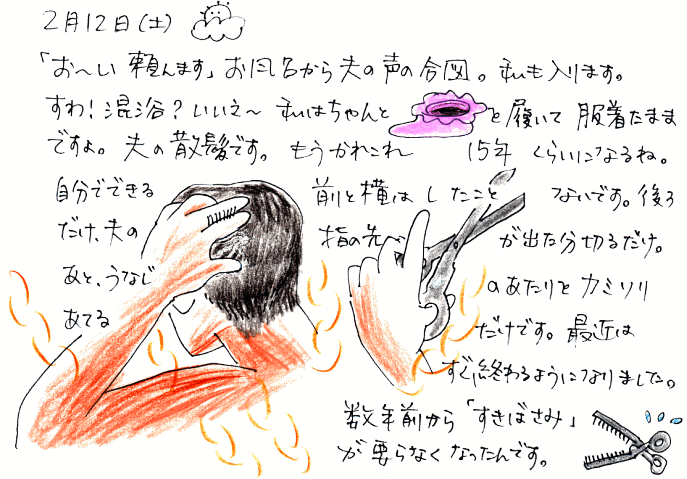 2月12日(土)
「お〜い 頼んます」お風呂から夫の声の合図。私も入ります。
すわ!混浴?いいえ〜 私はちゃんと を履いて 服着たまま
ですよ。夫の散髪です。もうかれこれ 15年 くらいになるね。
自分でできる 前と横は したこと ないです。後ろ
だけ、夫の 指の先へ が出た分切るだけ。
あと、うなじ のあたりと カミソリ
あてる だけです。最近は
すぐ終わるようになりました。
数年前から「すきばさみ」
が要らなくなったんです。